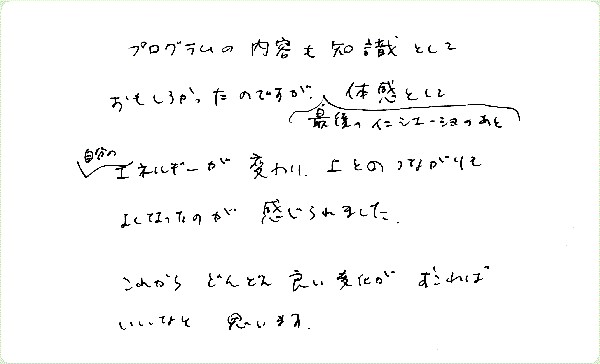 プログラムの内容も知識として
おもしろかったのですが、体感として
最後のイニシエーションのあと
自分の
エネルギーが変わり、上とのつながりも
よくなったのが感じられました。
これからどんどん良い変化がおこれば
いいなと思います。